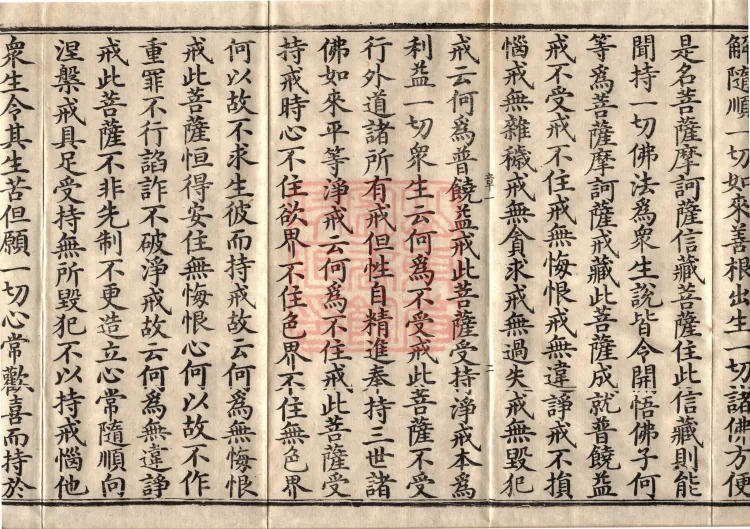 解隨順一切如來善根出生一切諸佛方便
是名菩薩摩訶薩信藏菩薩住此信藏則能
聞持一切佛法爲衆生說皆令開悟佛子何
等爲菩薩摩訶薩戒藏此菩薩成就普饒益
戒不受戒不住戒無悔恨戒無違諍戒不損
惱戒無雜穢戒無貪求戒無過失戒無毀犯
章一
二
戒云何爲普饒益戒此菩薩受持淨戒本爲
利益一切衆生云何爲不受戒此菩薩不受
行外道諸所有戒但性自精進奉持三世諸
佛如來平等淨戒云何爲不住戒此菩薩受
持戒時心不住欲界不住色界不住無色界
何以故不求生彼而持戒故云何爲無悔恨
戒此菩薩恒得安住無悔恨心何以故不作
重罪不行諂詐不破淨戒故云何爲無違諍
戒此菩薩不非先制不更造立心常隨順向
涅槃戒具足受持無所毀犯不以持戒惱他
衆生令其生苦但願一切心常歡喜而持於